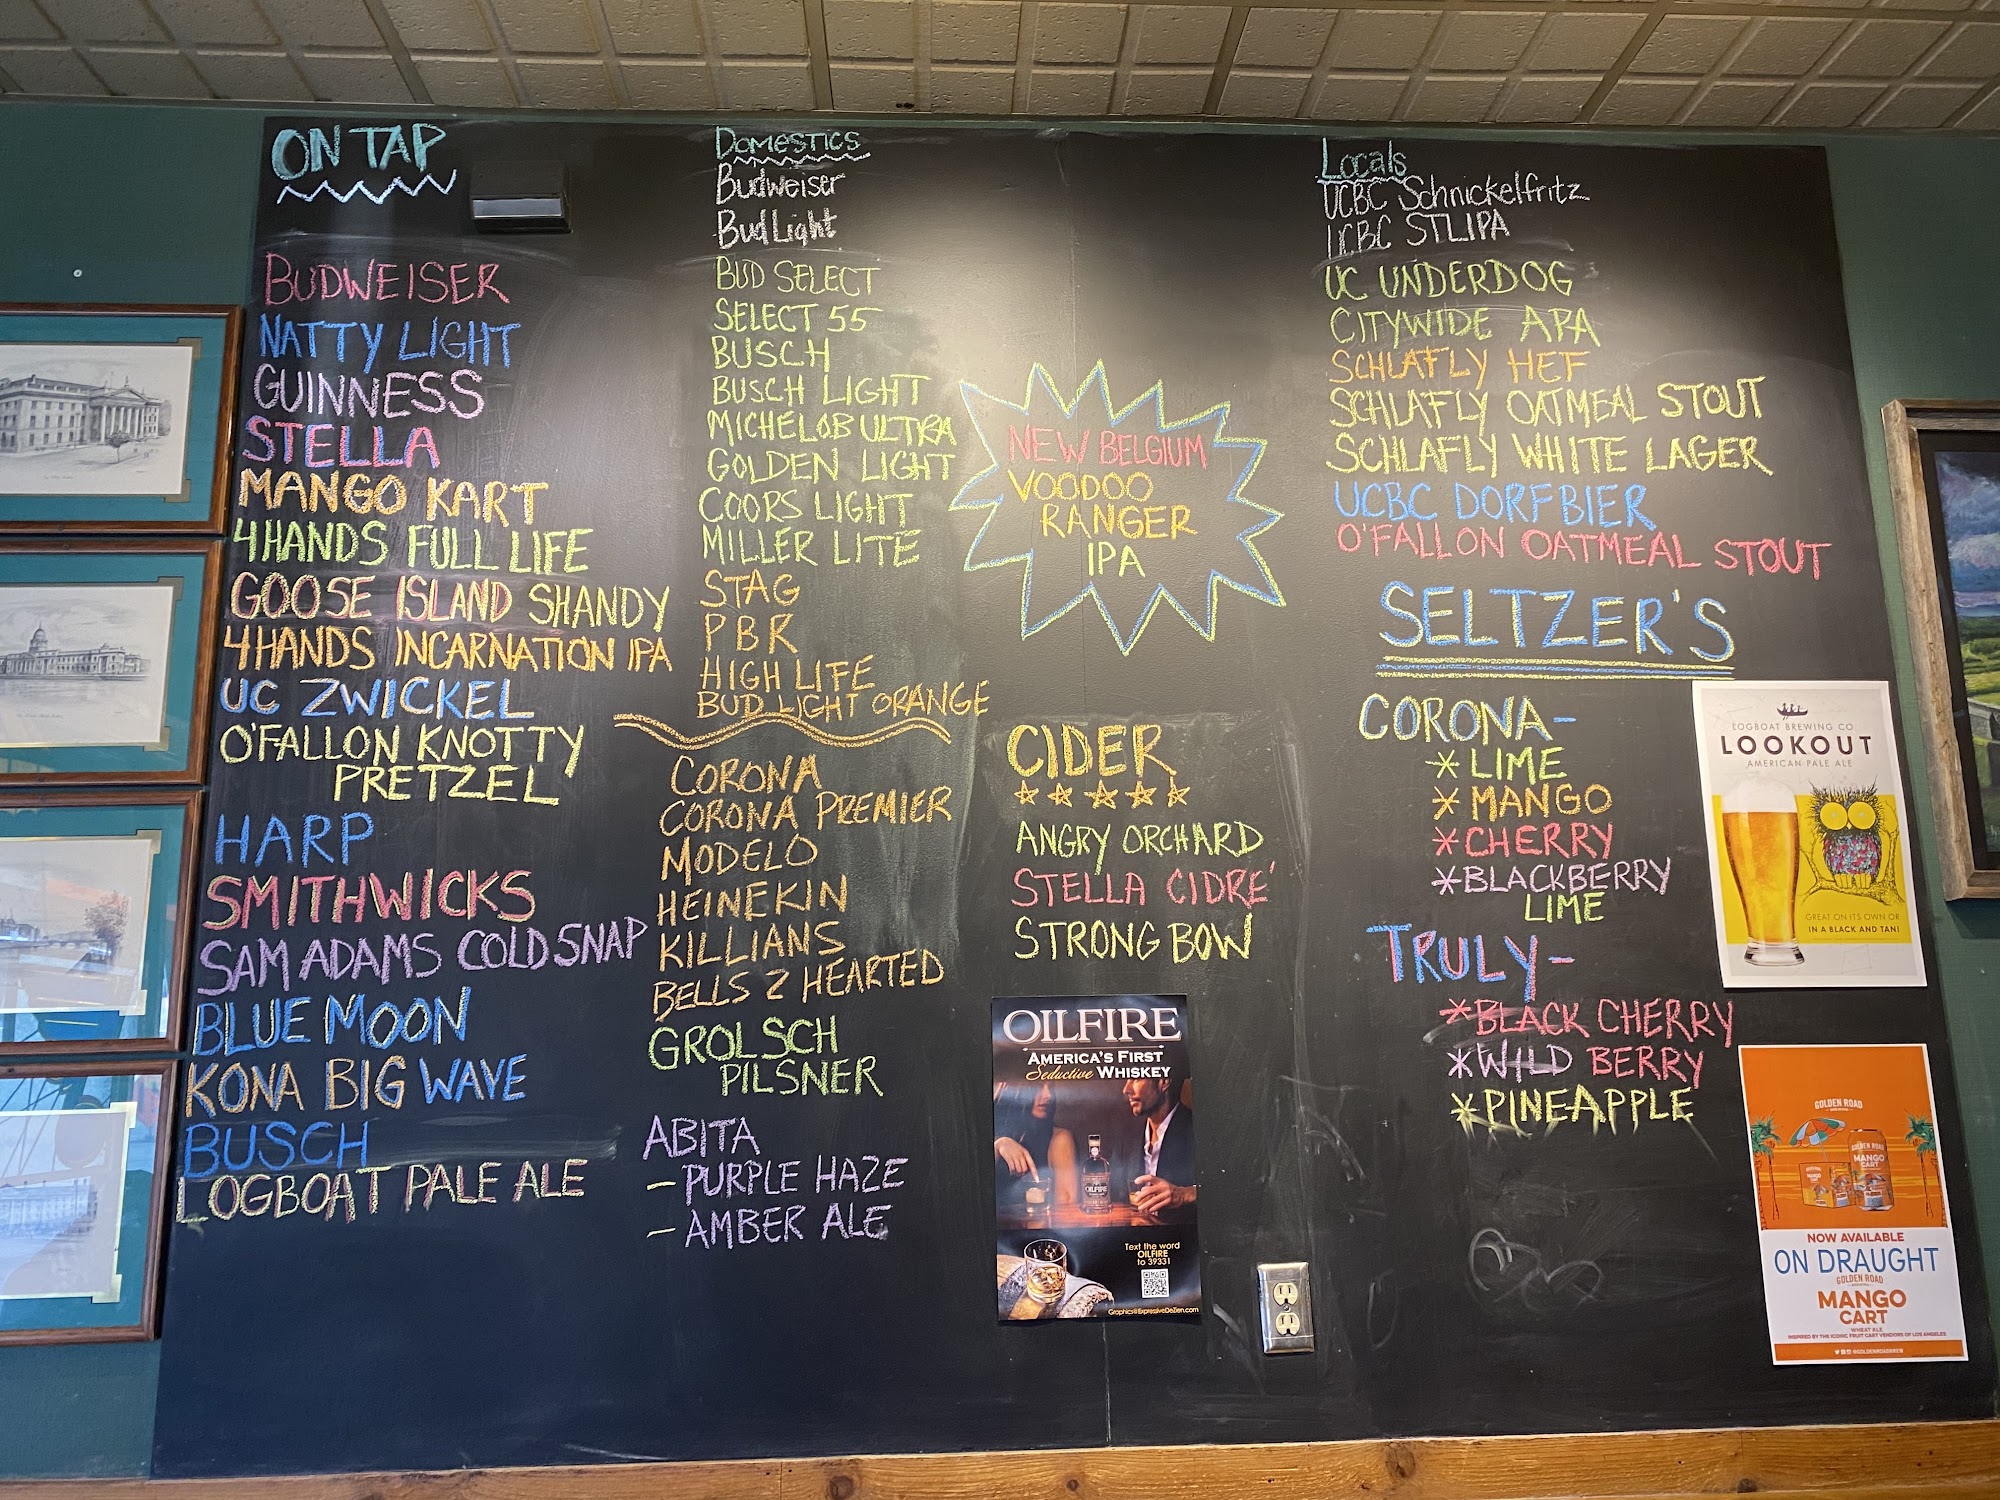 ON TAP
BUDWEISER
NATTY LIGHT
GUINNESS
STELLA
MANGO KART
4HANDS FULL LIFE
GOOSE ISLAND SHANDY
4HANDS INCARNATION IPA
UC ZWICKEL
O'FALLON KNOTTY
PRETZEL
HARP
SMITHWICKS
SAM ADAMS COLD SNAP
BLUE MOON
KONA BIG WAVE
BUSCH
LOGBOAT PALE ALE
DOMESTICS
Budweiser
Bud Light
BUD SELECT
SELECT 55
BUSCH
BUSCH LIGHT
MICHELOB ULTRA
GOLDEN LIGHT
COORS LIGHT
MILLER LITE
STAG
PBR
HIGH LIFE
BUD LIGHT ORANGE
CORONA
CORONA PREMIER
MODELO
HEINEKIN
KILLIANS
BELLS 2 HEARTED
GROLSCH
PILSNER
ABITA
- PURPLE HAZE
- AMBER ALE
NEW BELGIUM
VOODOO
RANGER
IPA
CIDER
ANGRY ORCHARD
STELLA CIDRE'
STRONG BOW
OILFIRE
AMERICA'S FIRST
Seductive WHISKEY
OILFIRE
Text the word
OILFIRE
to 39331
Graphics@ExpressiveDeZien.com
Locals
UCBC Schnickelfritz
UCBC STLIPA
UC UNDERDOG
CITYWIDE APA
SCHLAFLY HEF
SCHLAFLY OATMEAL STOUT
SCHLAFLY WHITE LAGER
UCBC DORFBIER
O'FALLON OATMEAL STOUT
SELTZER'S
CORONA-
*LIME
*MANGO
*CHERRY
*BLACKBERRY
LIME
TRULY-
*BLACK CHERRY
*WILD BERRY
*PINEAPPLE
LOGBOAT BREWING CO
LOOKOUT
AMERICAN PALE ALE
GREAT ON ITS OWN OR
IN A BLACK AND TAN!
GOLDEN ROAD
GOLDEN ROAD
MANGO
CART
NOW AVAILABLE
ON DRAUGHT
GOLDEN ROAD
MANGO
CART
WHEAT ALE
INSPIRED BY THE ICONIC FRUIT CART VENDORS OF LOS ANGELES
@GOLDENROADBREW